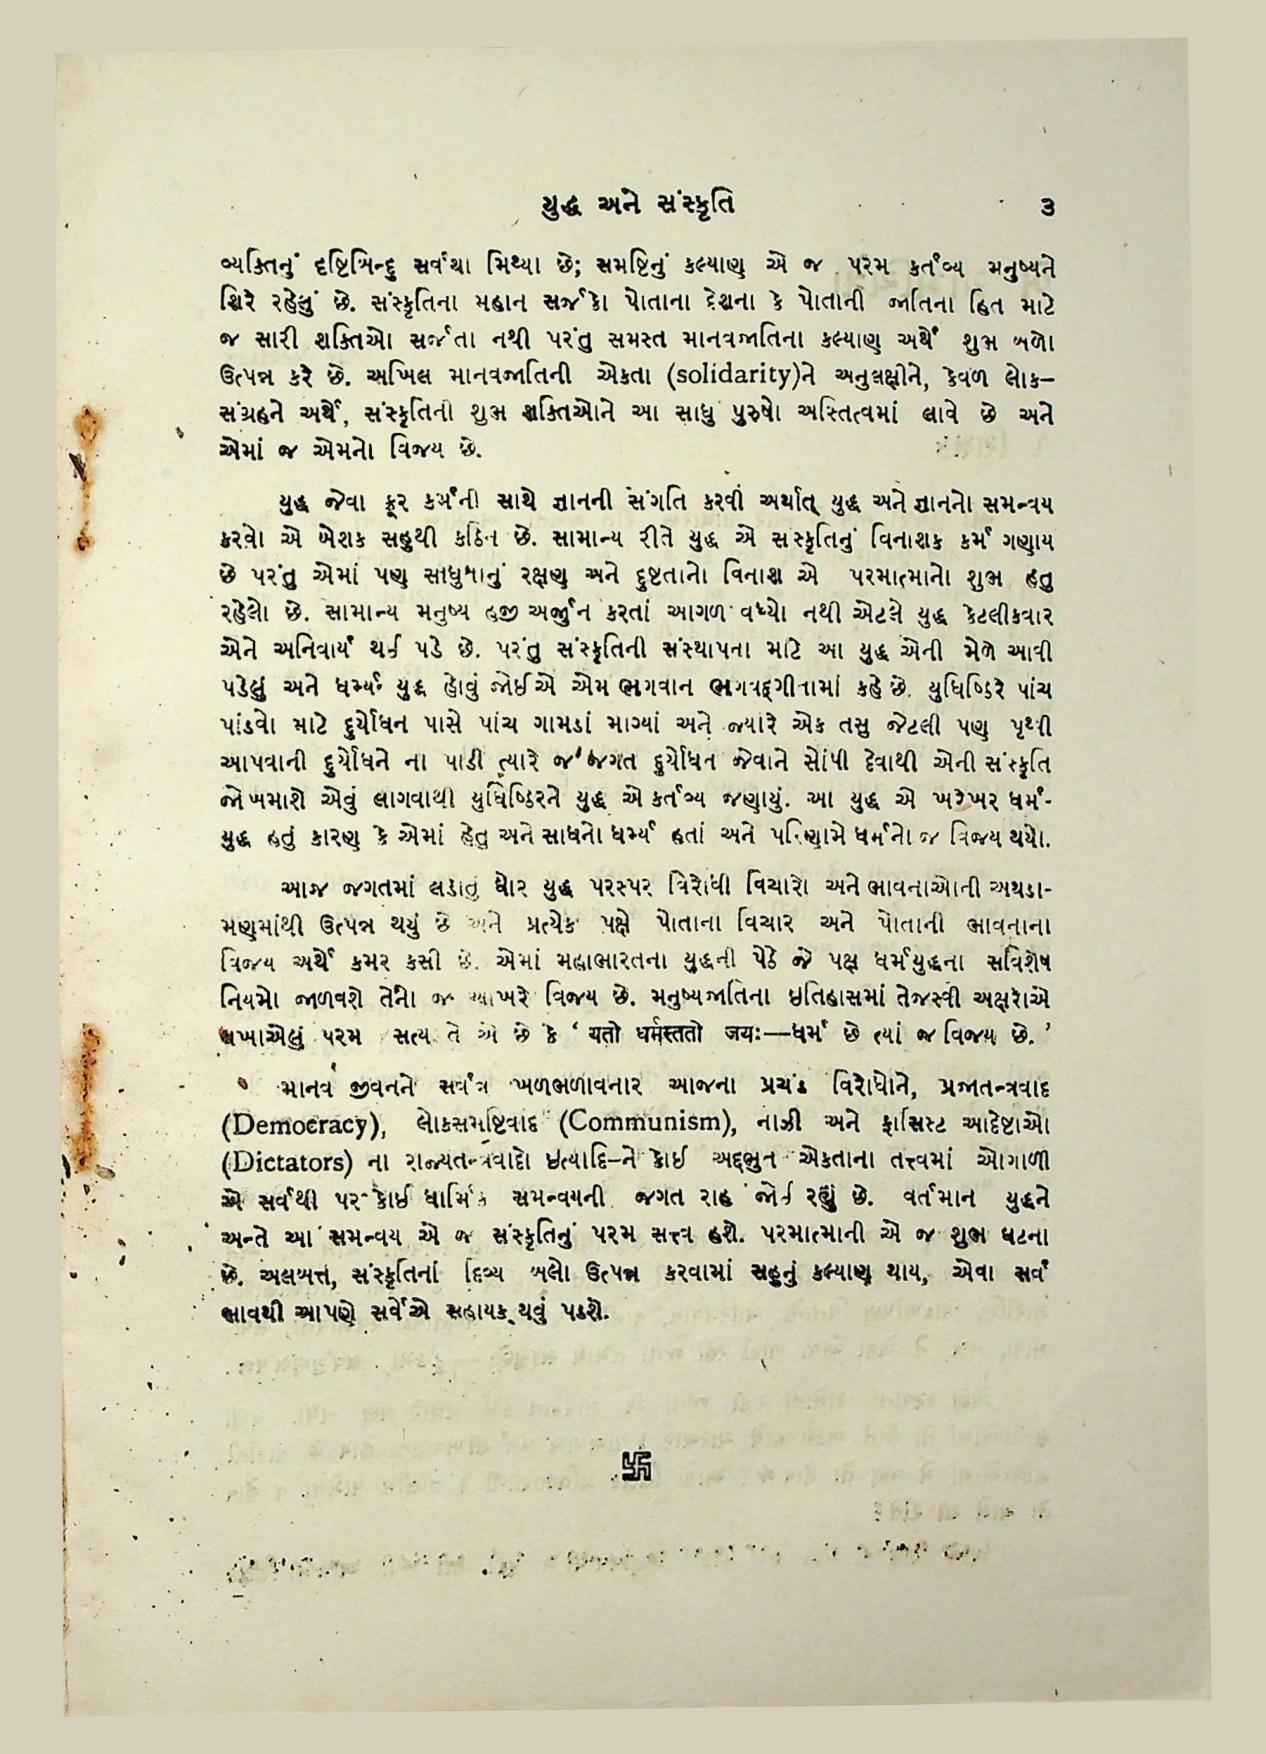 યુદ્ધ અને સંસ્કૃતિ ૩
વ્યક્તિનું દૃષ્ટિબિન્દુ સર્વથા મિથ્યા છે; સમષ્ટિનું કલ્યાણ એ જ પરમ કર્તવ્ય મનુષ્યને
શિરે રહેલું છે. સંસ્કૃતિના મહાન સર્જકો પોતાના દેશના કે પોતાની જાતિના હિત માટે
જ સારી શક્તિઓ સર્જતા નથી પરંતુ સમસ્ત માનવજાતિના કલ્યાણ અર્થે શુભ બળો
ઉત્પન્ન કરે છે. અખિલ માનવજાતિની એકતા (solidarity)ને અનુલક્ષીને, કેવળ લોક–
સંગ્રહને અર્થે, સંસ્કૃતિની શુભ શક્તિઓને આ સાધુ પુરુષો અસ્તિત્વમાં લાવે છે અને
એમાં જ એમનો વિજય છે.
યુદ્ધ જેવા ક્રૂર કર્મની સાથે જ્ઞાનની સંગતિ કરવી અર્થાત્ યુદ્ધ અને જ્ઞાનનો સમન્વય
કરવો એ બેશક સહુથી કઠિન છે. સામાન્ય રીતે યુદ્ધ એ સંસ્કૃતિનું વિનાશક કર્મ ગણાય
છે પરંતુ એમાં પણ સાધુતાનું રક્ષણ અને દુષ્ટતાનો વિનાશ એ પરમાત્માનો શુભ હેતુ
રહેલો છે. સામાન્ય મનુષ્ય હજી અર્જુન કરતાં આગળ વધ્યો નથી એટલે યુદ્ધ કેટલીકવાર
એને અનિવાર્ય થઈ પડે છે. પરંતુ સંસ્કૃતિની સંસ્થાપના માટે આ યુદ્ધ એની મેળે આવી
પડેલું અને ધર્મ્ય યુદ્ધ હોવું જોઈએ એમ ભગવાન ભગવદ્ગીતામાં કહે છે. યુધિષ્ઠિરે પાંચ
પાંડવો માટે દુર્યોધન પાસે પાંચ ગામડાં માગ્યાં અને જ્યારે એક તસુ જેટલી પણ પૃથ્વી
આપવાની દુર્યોધને ના પાડી ત્યારે જ જગત દુર્યોધન જેવાને સોંપી દેવાથી એની સંસ્કૃતિ
જોખમાશે એવું લાગવાથી યુધિષ્ઠિરને યુદ્ધ એ કર્તવ્ય જણાયું. આ યુદ્ધ એ ખરેખર ધર્મ-
યુદ્ધ હતું કારણ કે એમાં હેતુ અને સાધનો ધર્મ્ય હતાં અને પરિણામે ધર્મનો જ વિજય થયો.
આજ જગતમાં લડાતું ઘોર યુદ્ધ પરસ્પર વિરોધી વિચારો અને ભાવનાઓની અથડા-
મણમાંથી ઉત્પન્ન થયું છે અને પ્રત્યેક પક્ષે પોતાના વિચાર અને પોતાની ભાવનાના
વિજય અર્થે કમર કસી છે. એમાં મહાભારતના યુદ્ધની પેઠે જે પક્ષ ધર્મયુદ્ધના સવિશેષ
નિયમો જાળવશે તેનો જ આખરે વિજય છે. મનુષ્યજાતિના ઇતિહાસમાં તેજસ્વી અક્ષરોએ
લખાએલું પરમ સત્ય તે એ છે કે ‘ यतो धर्मस्ततो जयः—ધર્મ છે ત્યાં જ વિજય છે.’
માનવ જીવનને સર્વત્ર ખળભળાવનાર આજના પ્રચંડ વિરોધોને, પ્રજાતન્ત્રવાદ
(Democracy), લોકસમષ્ટિવાદ (Communism), નાઝી અને ફાસિસ્ટ આદેષ્ટાઓ
(Dictators) ના રાજ્યતન્ત્રવાદો ઇત્યાદિ–ને કોઈ અદ્દભુત એકતાના તત્ત્વમાં ઓગાળી
એ સર્વથી પર કોઈ ધાર્મિક સમન્વયની જગત રાહ જોઈ રહ્યું છે. વર્તમાન યુદ્ધને
અન્તે આ સમન્વય એ જ સંસ્કૃતિનું પરમ સત્ત્વ હશે. પરમાત્માની એ જ શુભ ઘટના
છે. અલબત્ત, સંસ્કૃતિનાં દિવ્ય બલો ઉત્પન્ન કરવામાં સહુનું કલ્યાણ થાય, એવા સર્વ
ભાવથી આપણે સર્વેએ સહાયક થવું પડશે.
卐